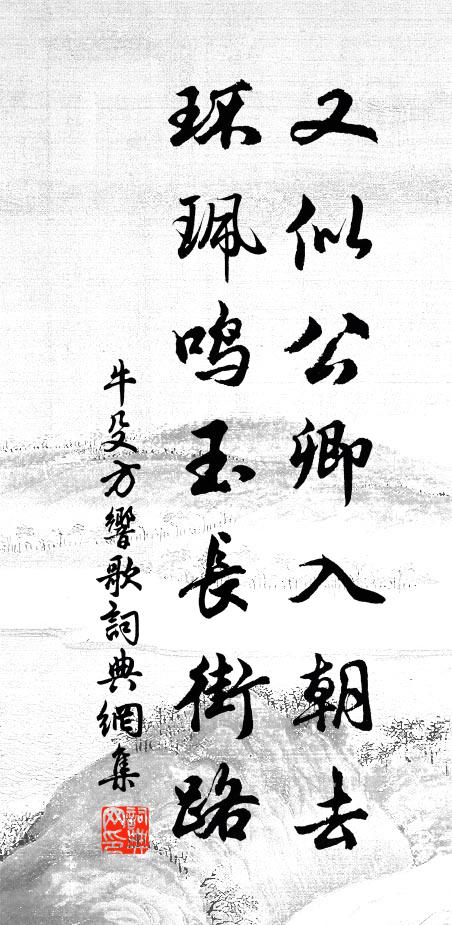 又似公卿入朝去
环珮鸣玉長街路
牛殳方響歌詞典網集